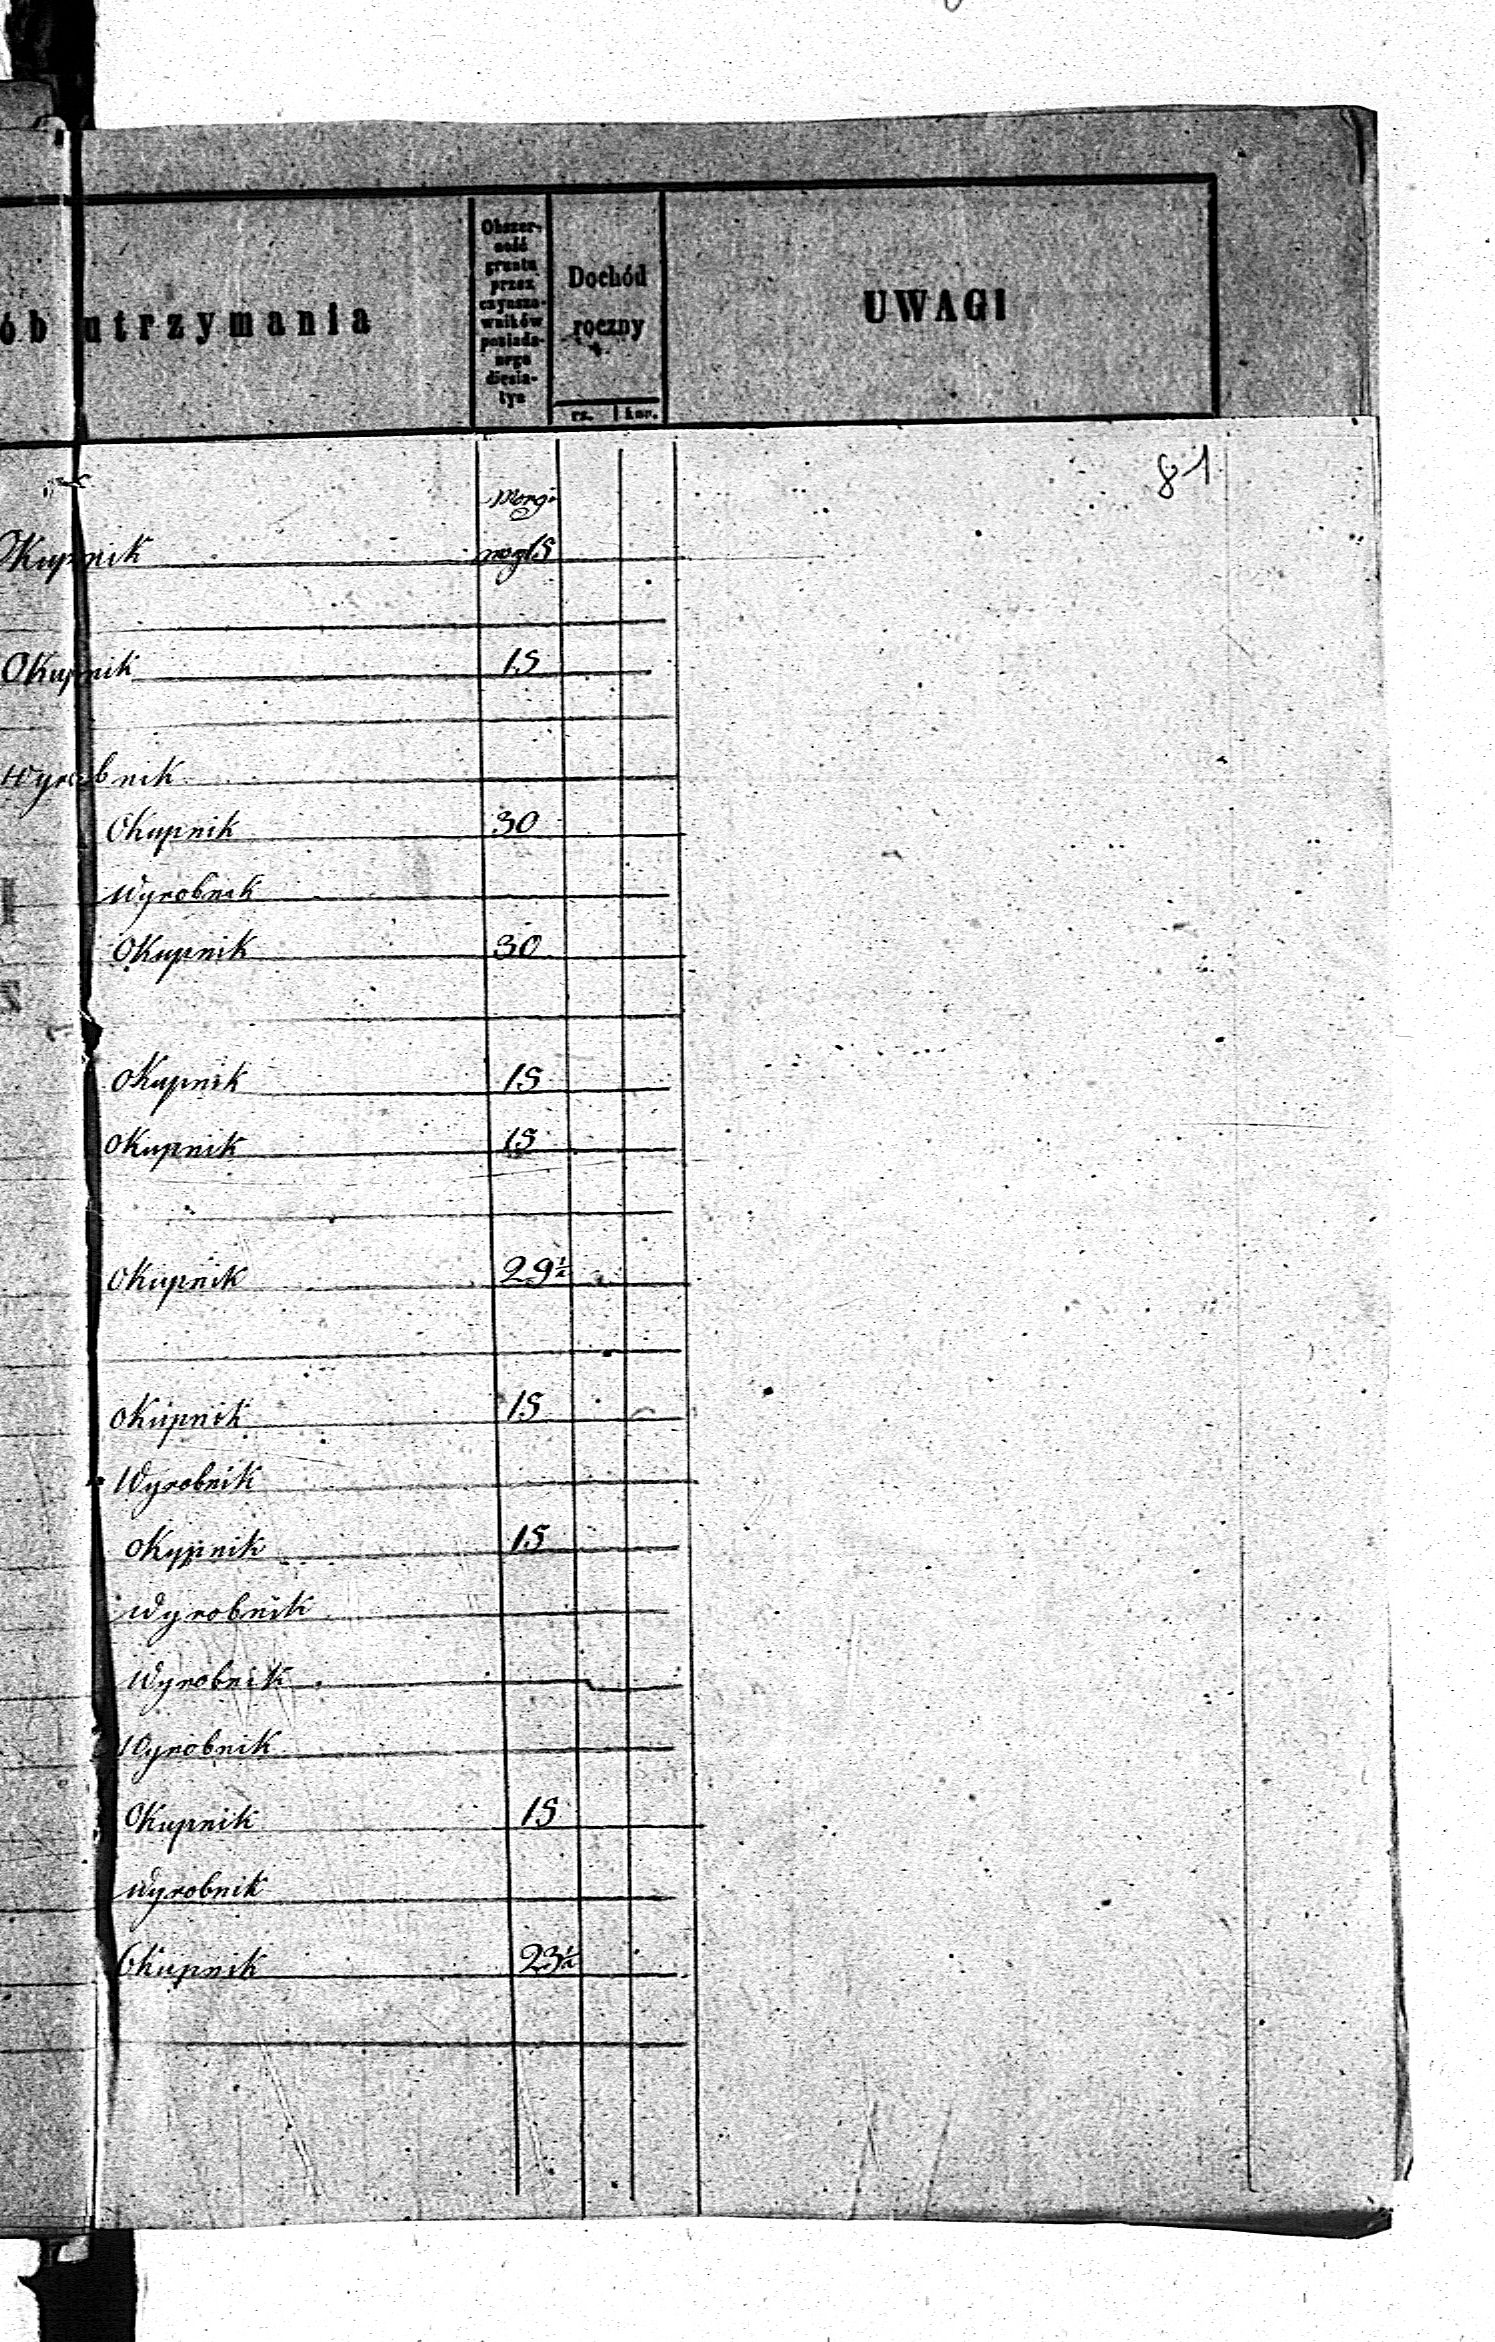 ób utrzymania
Obszer-
ność
gruntu
przez
czynszo-
wników
posiada-
nego
diesia-
tyn
Dochód
roczny
rs. kop.
UWAGI
81
Morgi
Okupnik 15
Okupnik 15
Wyrobnik
Okupnik 30
Wyrobnik
Okupnik 30
Okupnik 15
Okupnik 15
Okupnik 29½
Okupnik 15
Wyrobnik
Okypnik 15
Wyrobnik
Wyrobnik
Wyrobnik
Okupnik 15
Wyrobnik
Okupnik 23½